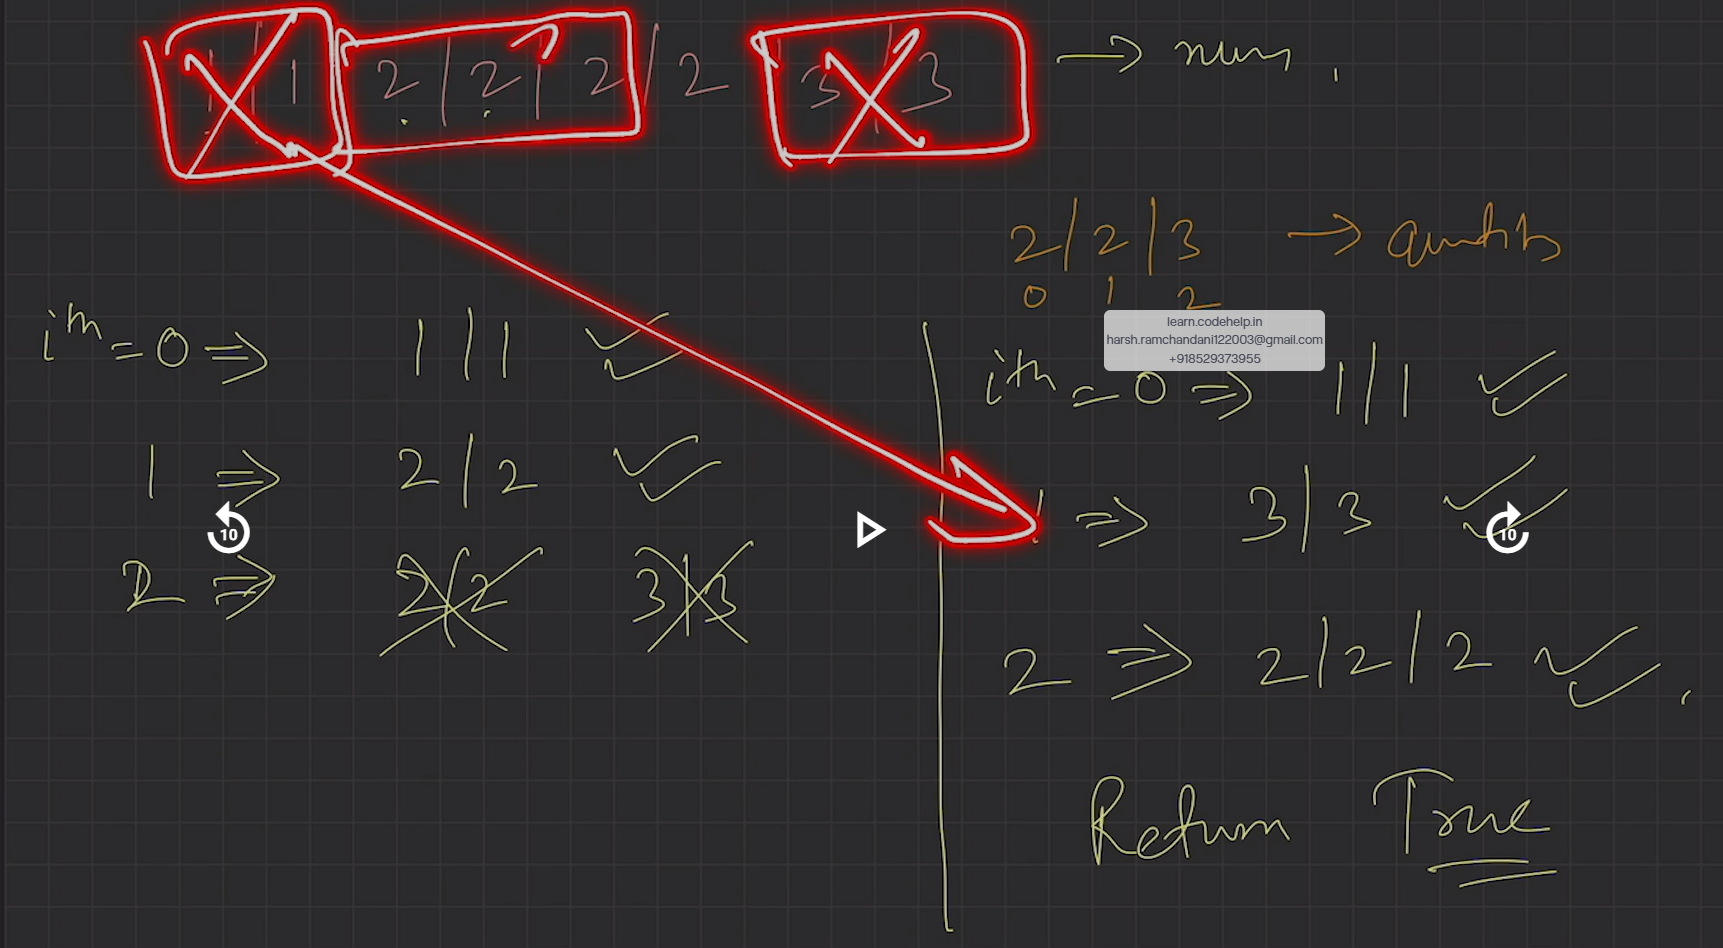 1 | 1 2 | 2 | 2 | 2 3 | 3 → nums
2 | 2 | 3 → quantity
0 1 2
learn.codehelp.in
harsh.ramchandani122003@gmail.com
+918529373955
ith = 0 ⇒ 1 | 1
1 ⇒ 2 | 2
2 ⇒ 2 | 2 3 | 3
ith = 0 ⇒ 1 | 1
1 ⇒ 3 | 3
2 ⇒ 2 | 2 | 2
Return True
10
10